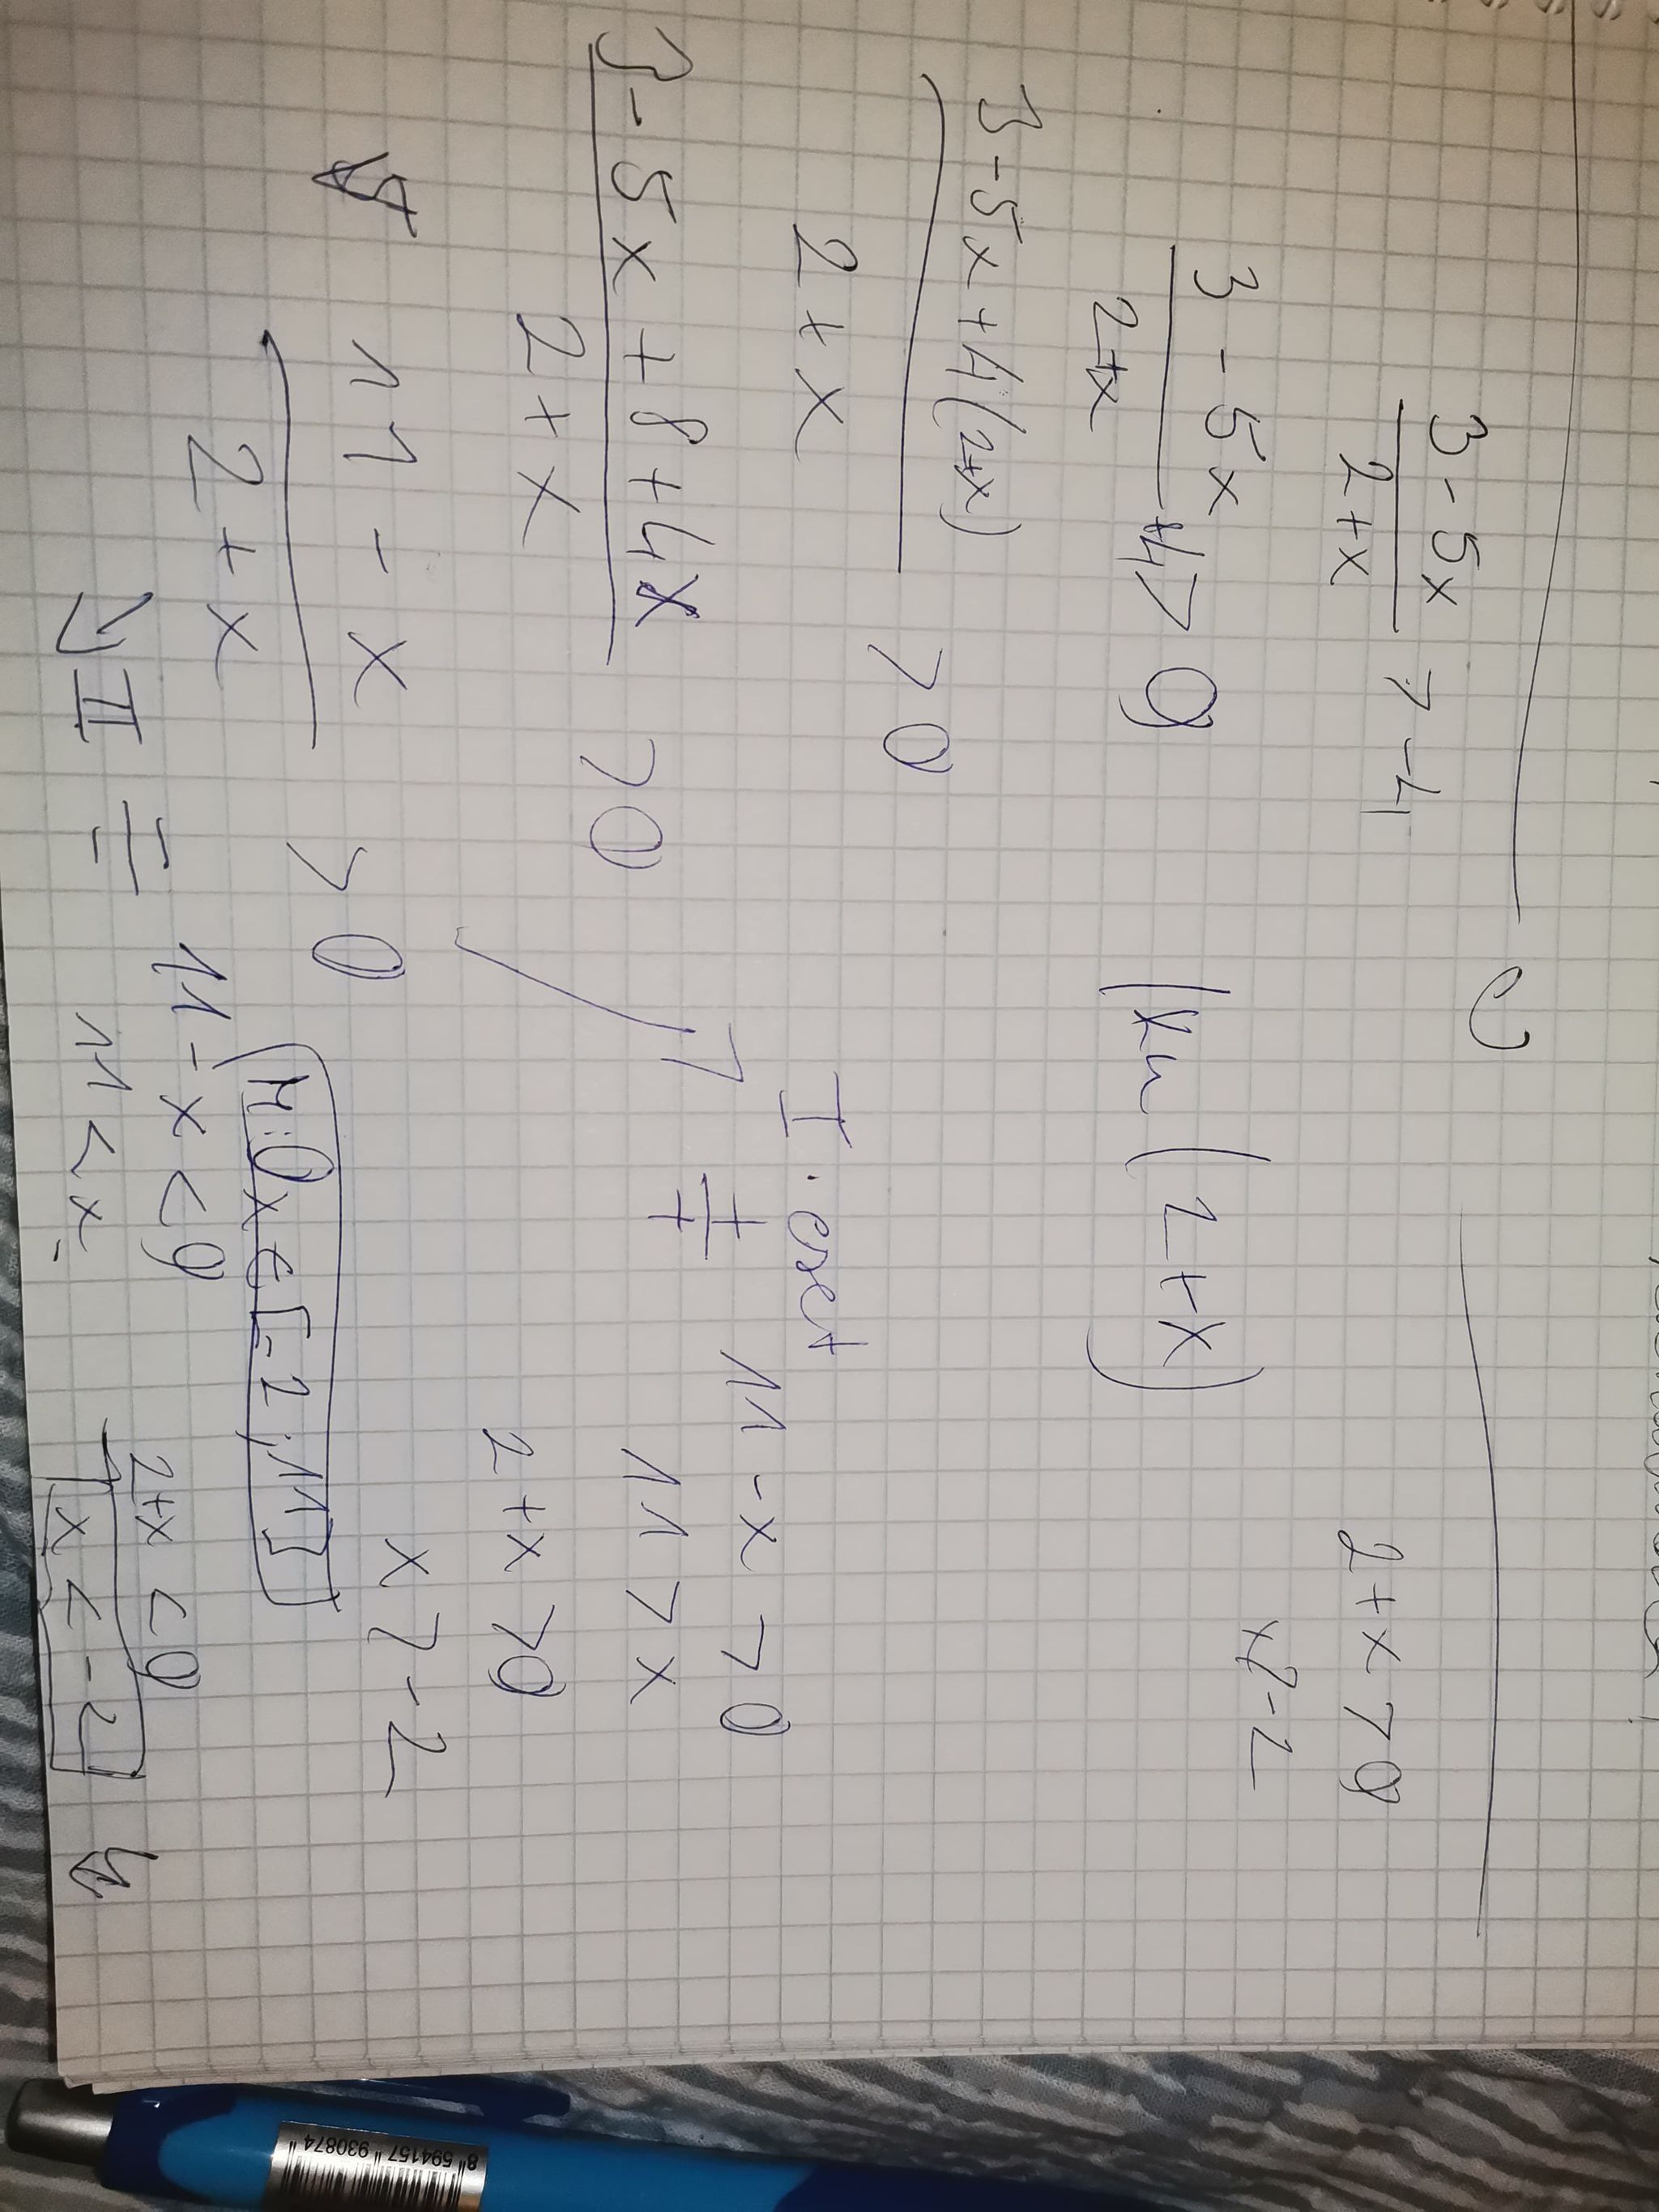 3 - 5x / 2+x > -4
2+x > 0
x > -2
3 - 5x / 2+x +4 > 0
(2+x)
3 - 5x + 4(2+x) / 2 + x > 0
I.
11 - x > 0
3 - 5x + 8 + 4x / 2 + x > 0
+ / +
11 > x
2 + x > 0
11 - x / 2 + x > 0
x > -2
M: 0 x ∈ [-2; 11]
II
- / -
11 - x < 0
2+x < 0
11 < x
x < -2
8 594157 930874